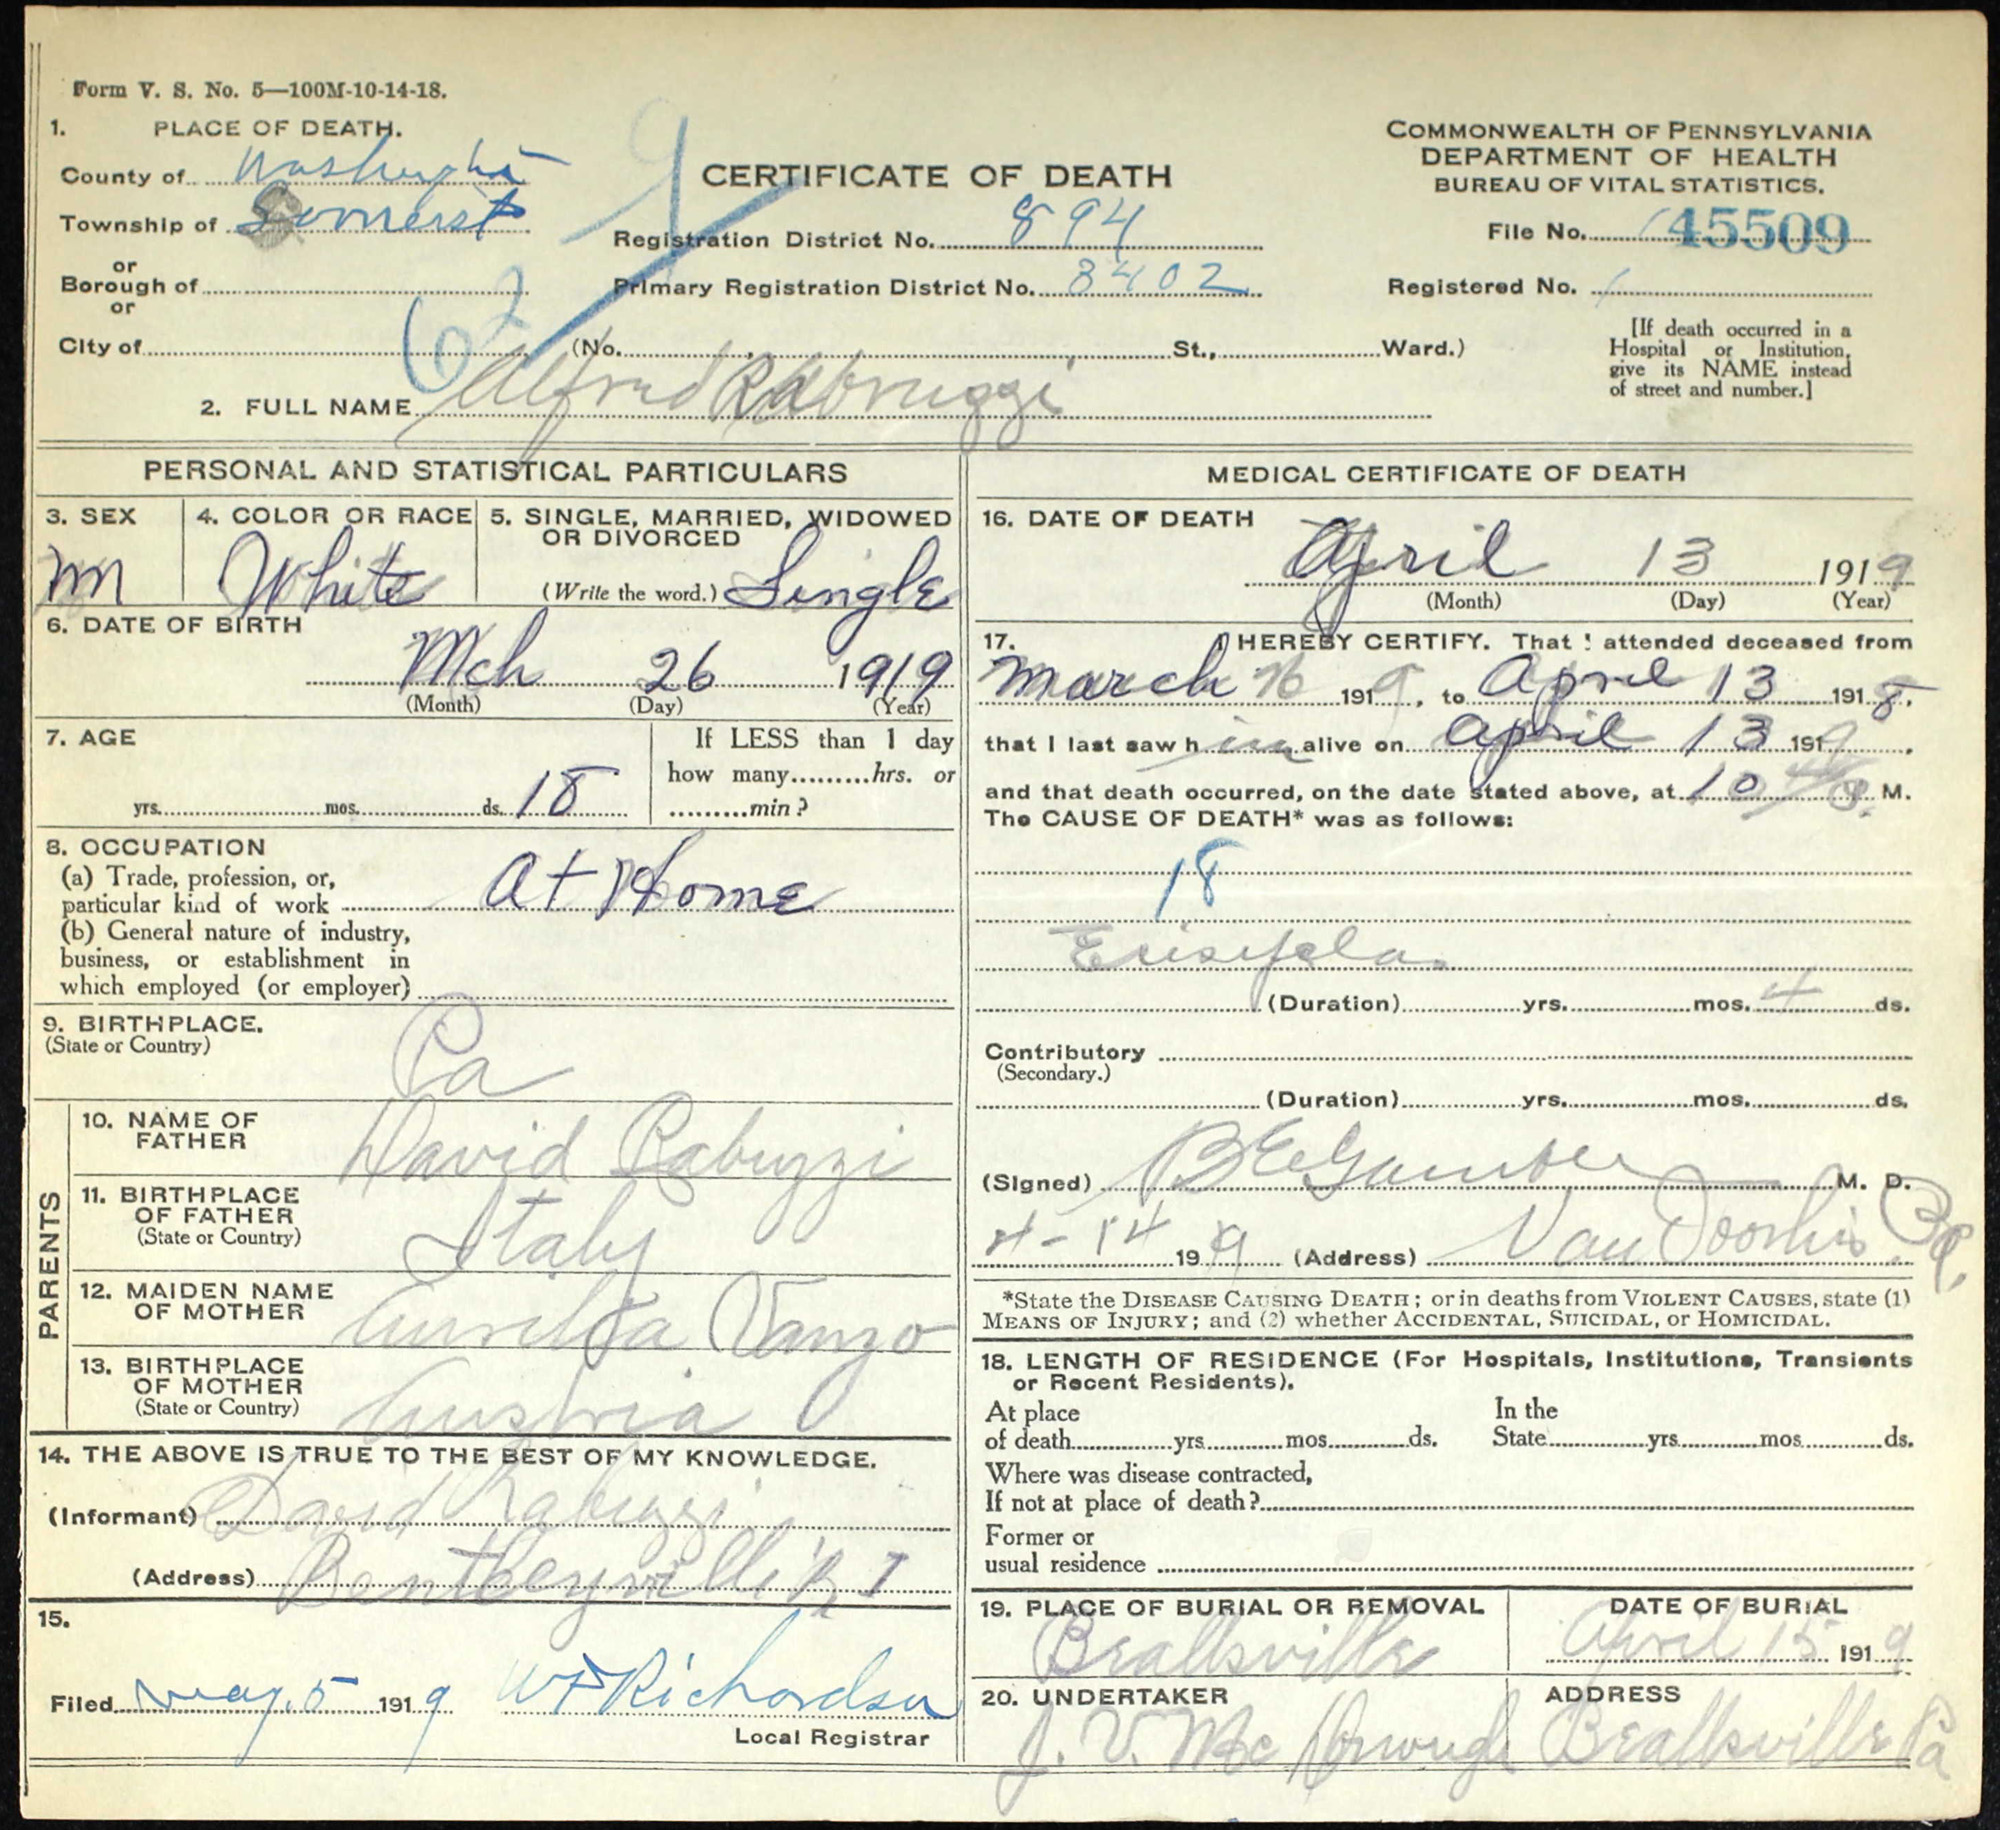 Form V. S. No. 5—100M-10-14-18.
1. PLACE OF DEATH.
County of Washington
Township of Somerset
or
Borough of
or
City of
CERTIFICATE OF DEATH
Registration District No. 894
Primary Registration District No. 8402
(No. , St., Ward.)
COMMONWEALTH OF PENNSYLVANIA
DEPARTMENT OF HEALTH
BUREAU OF VITAL STATISTICS.
File No. 45509
Registered No. 1
[If death occurred in a
Hospital or Institution,
give its NAME instead
of street and number.]
62
2. FULL NAME Alfred Rabruzzi
PERSONAL AND STATISTICAL PARTICULARS
3. SEX
m
4. COLOR OR RACE
White
5. SINGLE, MARRIED, WIDOWED
OR DIVORCED
(Write the word.) Single
6. DATE OF BIRTH
Mch 26 1919
(Month) (Day) (Year)
7. AGE
yrs. mos. ds. 18
If LESS than 1 day
how many hrs. or
min?
8. OCCUPATION
(a) Trade, profession, or,
particular kind of work At Home
(b) General nature of industry,
business, or establishment in
which employed (or employer)
9. BIRTHPLACE.
(State or Country)
Pa
PARENTS
10. NAME OF
FATHER
David Rabuzzi
11. BIRTHPLACE
OF FATHER
(State or Country)
Italy
12. MAIDEN NAME
OF MOTHER
Vanzo
13. BIRTHPLACE
OF MOTHER
(State or Country)
Austria
14. THE ABOVE IS TRUE TO THE BEST OF MY KNOWLEDGE.
(Informant) David Rabuzzi
(Address) Bentleyville R 1
15.
Filed May. 5 1919 W F Richardson
Local Registrar
MEDICAL CERTIFICATE OF DEATH
16. DATE OF DEATH
April 13 1919
(Month) (Day) (Year)
17. I HEREBY CERTIFY. That I attended deceased from
March 26 1919, to April 13 1918,
that I last saw him alive on April 13 1919.
and that death occurred, on the date stated above, at 10 M.
The CAUSE OF DEATH* was as follows:
18
Erisyelas
(Duration) yrs. mos. 4 ds.
Contributory
(Secondary.)
(Duration) yrs. mos. ds.
(Signed) B E M. D.
4-14 1919 (Address) Van Voorhis Pa.
*State the DISEASE CAUSING DEATH; or in deaths from VIOLENT CAUSES, state (1)
MEANS OF INJURY; and (2) whether ACCIDENTAL, SUICIDAL, or HOMICIDAL.
18. LENGTH OF RESIDENCE (For Hospitals, Institutions, Transients
or Recent Residents).
At place
of death yrs mos ds.
In the
State yrs mos ds.
Where was disease contracted,
If not at place of death?
Former or
usual residence
19. PLACE OF BURIAL OR REMOVAL
Beallsville
DATE OF BURIAL
April 15 1919
20. UNDERTAKER
J. V. Mc
ADDRESS
Beallsville Pa